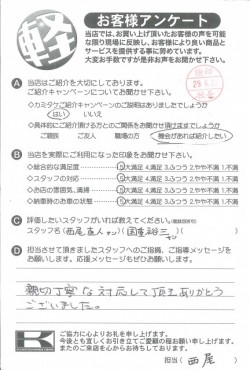 軽
お客様アンケート
当店では、お買い上げ頂いたお客様の声を可能
な限り現場に反映し、お客様により良い商品と
サービスを提供する事に努めています。
大変お手数ですが是非お声をお聞かせ下さい。
A 当店はご紹介を大切にしております。
ご紹介キャンペーンについてお聞かせ下さい。
◇カミタケご紹介キャンペーンのご説明はありましたでしょうか
はい いいえ
◇具体的にご紹介頂ける方とのご関係をお聞かせ頂けますでしょうか
ご親族 ご友人 職場の方 機会があれば紹介したい
B 当店を実際にご利用になった印象をお聞かせ下さい。
◇総合的な満足度 5大満足 4.満足 3.ふつう 2.やや不満 1.不満
◇スタッフの対応 5大満足 4.満足 3.ふつう 2.やや不満 1.不満
◇お店の雰囲気、清掃 5大満足 4.満足 3.ふつう 2.やや不満 1.不満
◇納車時のお車の状態 5大満足 4.満足 3.ふつう 2.やや不満 1.不満
C 評価したいスタッフがいれば教えてください。(複数回答可)
スタッフ名(西尾直人
D 担当させて頂きましたスタッフへのご指摘、ご指導メッセージを
お願いします。応援メッセージもぜひお願いします。
親切丁寧な対応して頂きありがとう
ございました。
K
ご協力に心よりお礼を申し上げます。
今後とも宜しくお引き立てご愛顧の程お願い申し上げます。
またのご来店を心からお待ちしております。
担当(西尾)